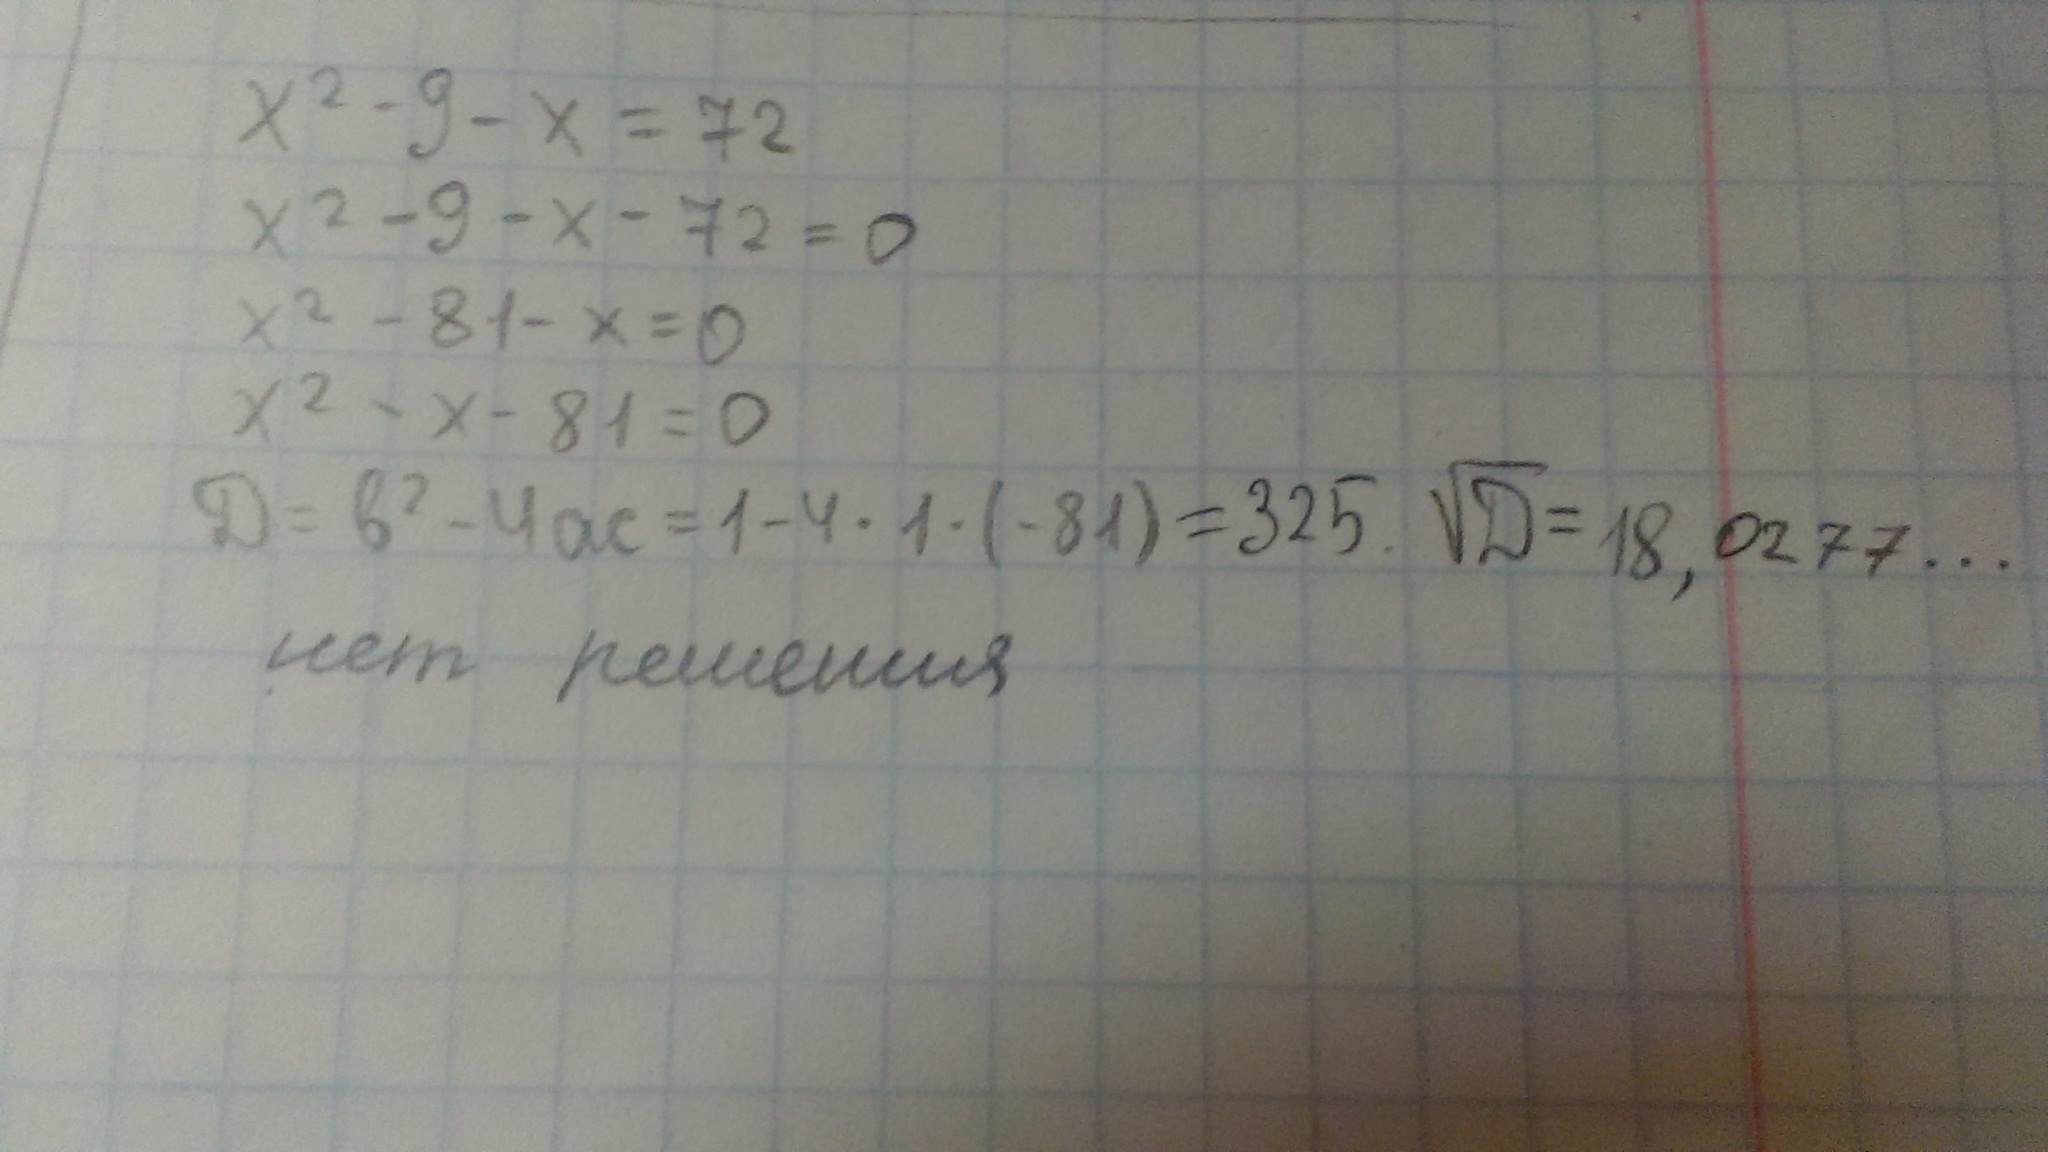 x² - 9 - x = 72
x² - 9 - x - 72 = 0
x² - 81 - x = 0
x² - x - 81 = 0
D = b² - 4ac = 1 - 4 · 1 · (-81) = 325. √D = 18,0277...
нет решения